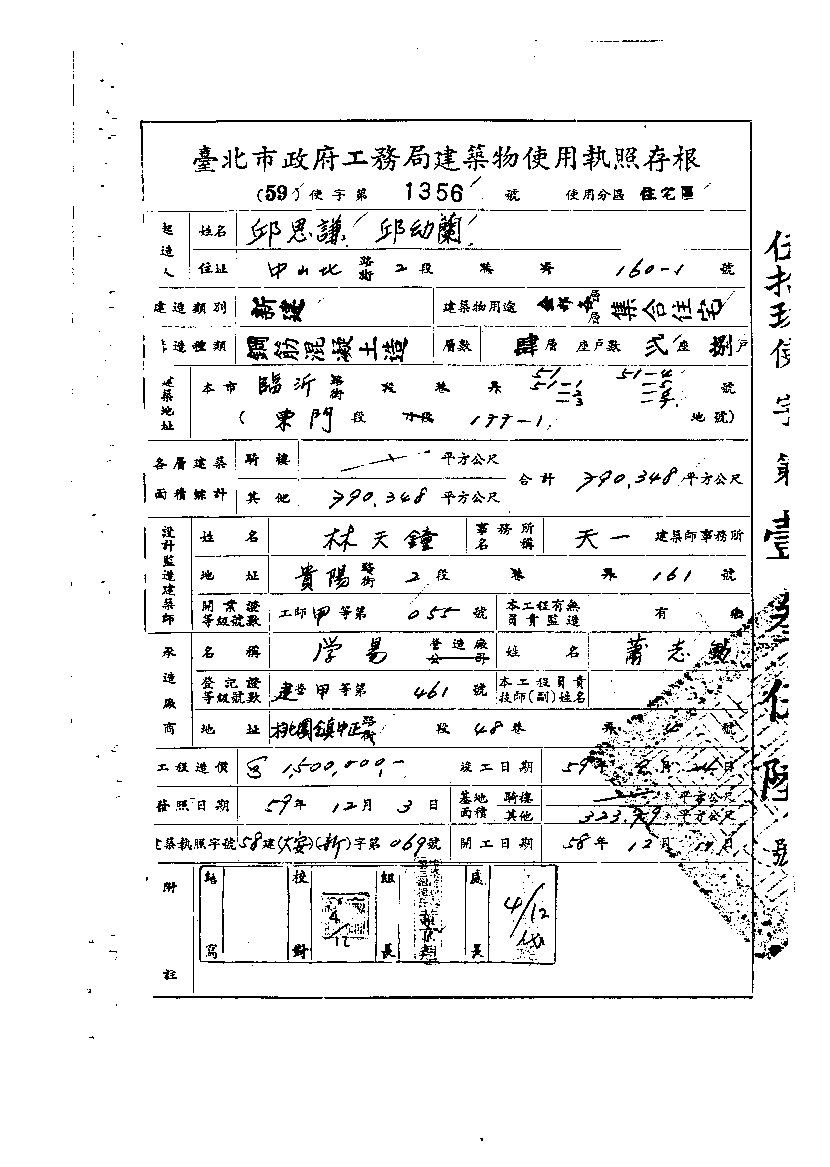 臺北市政府工務局建築物使用執照存根
(59)使字第 1356 號 使用分區 住宅區
起造人 姓名 邱思謙 邱幼蘭
住址 中山北路街 2段 巷 弄 160-1 號
建造類別 新建 建築物用途 集合住宅
造種類 鋼筋混凝土造 層數 肆層 座戶數 弍座 捌戶
建築地址 本市 臨沂路街 段 巷 弄 51 51-1 -2 -3 51-4 -5 號
(東門段 小段 177-1 地號)
各層建築面積總計 騎樓 平方公尺 合計 790.348 平方公尺
其他 790.348 平方公尺
設計監造建築師 姓名 林天鐘 事務所名稱 天一 建築師事務所
地址 貴陽路街 2段 巷 弄 161 號
開業證等級號數 工師甲等第 055 號 本工程有無負責監造 有
承造廠商 名稱 学易 營造廠公司 姓名 蕭志
登記證等級號數 建營甲等第 461 號 本工程負責技師(副)姓名
地址 桃園鎮中正路街 段 48巷 弄 號
工程造價 1,500,000,- 竣工日期 59年 月 日
發照日期 59年 12月 3日 基地面積 騎樓 平方公尺
其他 323.99 平方公尺
建築執照字號 58建(大安)(新)字第 069號 開工日期 58年 12月 日
附註 繕寫 校對 4/12 組長 處長 4/12
伍拾玖使字第壹 伍陸號